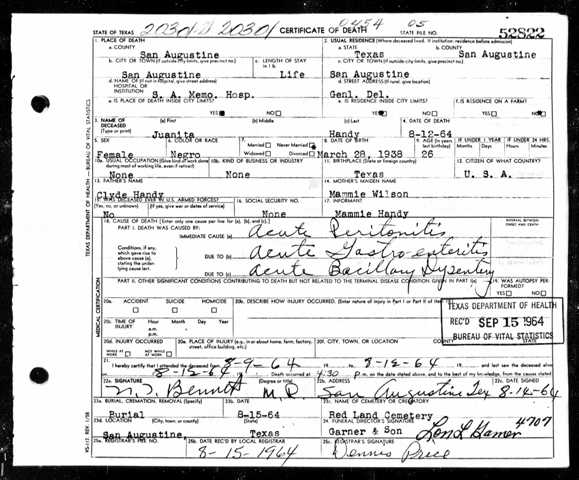 20301 20301 0454 05
STATE OF TEXAS CERTIFICATE OF DEATH STATE FILE NO. 52822
1. PLACE OF DEATH 2. USUAL RESIDENCE (Where deceased lived. If institution: residence before admission)
a. COUNTY a. STATE b. COUNTY
San Augustine Texas San Augustine
b. CITY OR TOWN (If outside city limits, give precinct no.) c. LENGTH OF STAY in 1 b c. CITY OR TOWN (If outside city limits, give precinct no.)
San Augustine Life San Augustine
d. NAME OF (If not in hospital, give street address) HOSPITAL OR INSTITUTION d. STREET ADDRESS (If rural, give location)
S. A. Memo. Hosp. Genl. Del.
e. IS PLACE OF DEATH INSIDE CITY LIMITS? YES NO e. IS RESIDENCE INSIDE CITY LIMITS? YES NO f. IS RESIDENCE ON A FARM? YES NO
3. NAME OF DECEASED (Type or print) (a) First (b) Middle (c) Last 4. DATE OF DEATH
Juanita Handy 8-12-64
5. SEX 6. COLOR OR RACE 7. Married Never Married Widowed Divorced 8. DATE OF BIRTH 9. AGE (In years last birthday) IF UNDER 1 YEAR Months Days IF UNDER 24 HRS. Hours Min.
Female Negro March 28, 1938 26
10a. USUAL OCCUPATION (Give kind of work done during most of working life, even if retired) 10b. KIND OF BUSINESS OR INDUSTRY 11. BIRTHPLACE (State or foreign country) 12. CITIZEN OF WHAT COUNTRY?
None None Texas U. S. A.
13. FATHER'S NAME 14. MOTHER'S MAIDEN NAME
Clyde Handy Mammie Wilson
15. WAS DECEASED EVER IN U.S. ARMED FORCES? (Yes, no, or unknown) (If yes, give war or dates of service) 16. SOCIAL SECURITY NO. 17. INFORMANT
No None Mammie Handy
18. CAUSE OF DEATH [Enter only one cause per line for (a), (b), and (c).] INTERVAL BETWEEN ONSET AND DEATH
PART I. DEATH WAS CAUSED BY:
IMMEDIATE CAUSE (a) Acute Peritonitis
Conditions, if any, which gave rise to above cause (a), stating the underlying cause last.
DUE TO (b) Acute Gastro-enteritis
DUE TO (c) Acute Bacillary Dysentery
PART II. OTHER SIGNIFICANT CONDITIONS CONTRIBUTING TO DEATH BUT NOT RELATED TO THE TERMINAL DISEASE CONDITION GIVEN IN PART I(a) 19. WAS AUTOPSY PERFORMED? YES NO
20a. ACCIDENT SUICIDE HOMICIDE 20b. DESCRIBE HOW INJURY OCCURRED. (Enter nature of injury in Part I or Part II of item 18.)
20c. TIME OF INJURY Hour a.m. p.m. Month Day Year
TEXAS DEPARTMENT OF HEALTH
REC'D SEP 15 1964
BUREAU OF VITAL STATISTICS
20d. INJURY OCCURRED WHILE AT WORK NOT WHILE AT WORK 20e. PLACE OF INJURY (e.g., in or about home, farm, factory, street, office building, etc.) 20f. CITY, TOWN, OR LOCATION COUNTY STATE
21. I hereby certify that I attended the deceased from 8-9-64 to 8-12-64 and last saw the deceased alive
on 8-12-64 Death occurred at 4:30 p. m. on the date stated above, and to the best of my knowledge, from the causes stated.
22a. SIGNATURE (Degree or title) 22b. ADDRESS 22c. DATE SIGNED
Bennett M.D. San Augustine Tex 8-14-64
23a. BURIAL, CREMATION, REMOVAL (Specify) 23b. DATE 23c. NAME OF CEMETERY OR CREMATORY
Burial 8-15-64 Red Land Cemetery
23d. LOCATION (City, town, or county) (State) 24. FUNERAL DIRECTOR'S SIGNATURE 4707
San Augustine, Texas Garner & Son Lon L Garner
25a. REGISTRAR'S FILE NO. 25b. DATE REC'D BY LOCAL REGISTRAR 25c. REGISTRAR'S SIGNATURE
8-15-1964 Dennis Price
TEXAS DEPARTMENT OF HEALTH — BUREAU OF VITAL STATISTICS
MEDICAL CERTIFICATION
VS-112 REV. 1/58